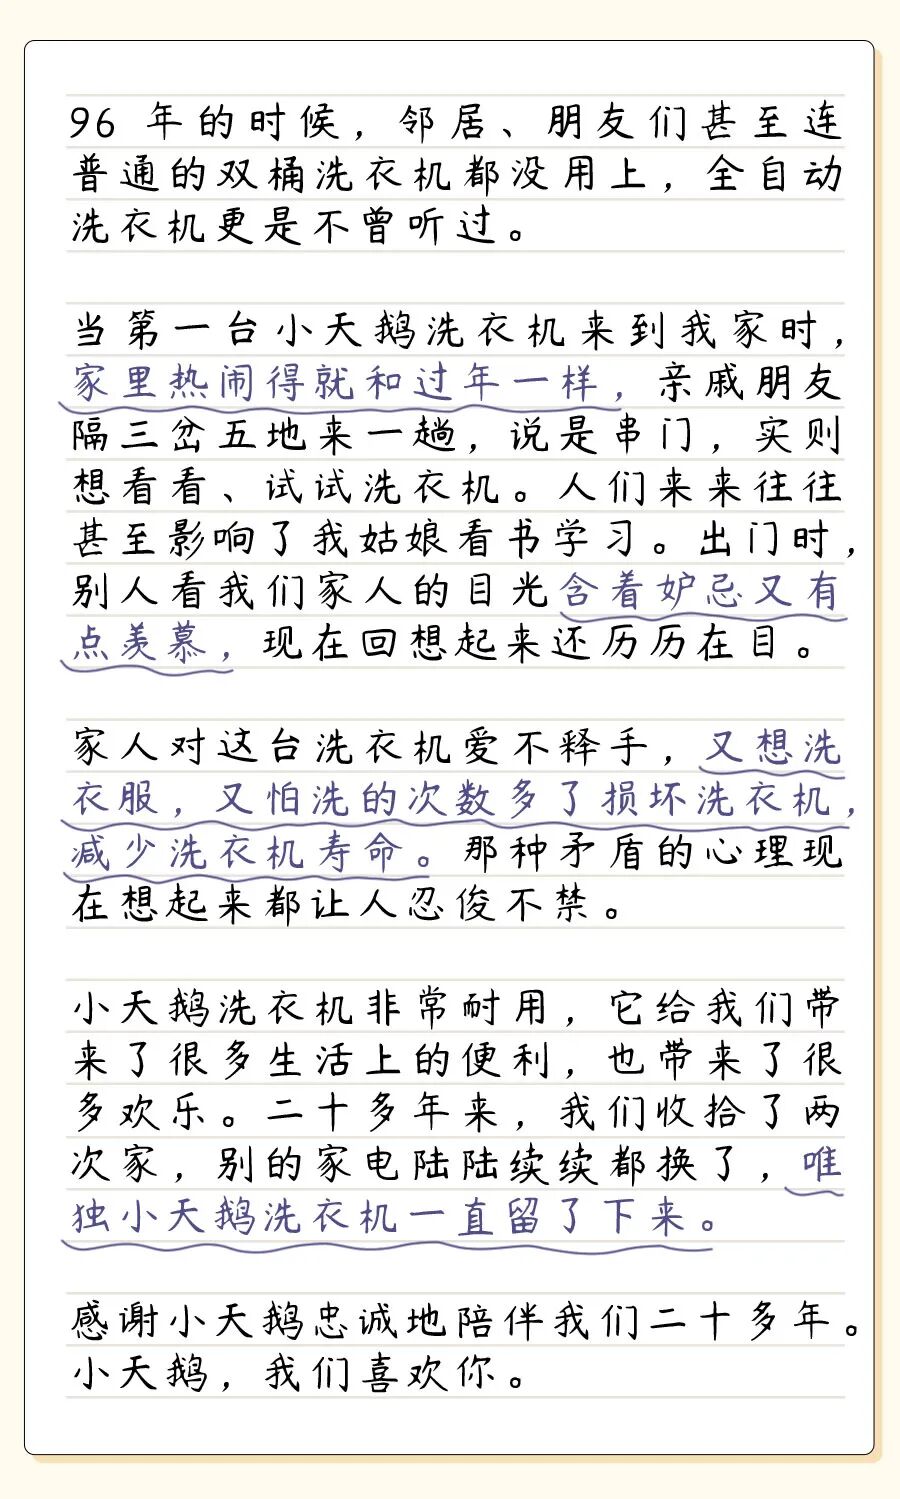 96 年的时候，邻居、朋友们甚至连
普通的双桶洗衣机都没用上，全自动
洗衣机更是不曾听过。
当第一台小天鹅洗衣机来到我家时，
家里热闹得就和过年一样，亲戚朋友
隔三岔五地来一趟，说是串门，实则
想看看、试试洗衣机。人们来来往往
甚至影响了我姑娘看书学习。出门时，
别人看我们家人的目光含着妒忌又有
点羡慕，现在回想起来还历历在目。
家人对这台洗衣机爱不释手，又想洗
衣服，又怕洗的次数多了损坏洗衣机，
减少洗衣机寿命。那种矛盾的心理现
在想起来都让人忍俊不禁。
小天鹅洗衣机非常耐用，它给我们带
来了很多生活上的便利，也带来了很
多欢乐。二十多年来，我们收拾了两
次家，别的家电陆陆续续都换了，唯
独小天鹅洗衣机一直留了下来。
感谢小天鹅忠诚地陪伴我们二十多年。
小天鹅，我们喜欢你。